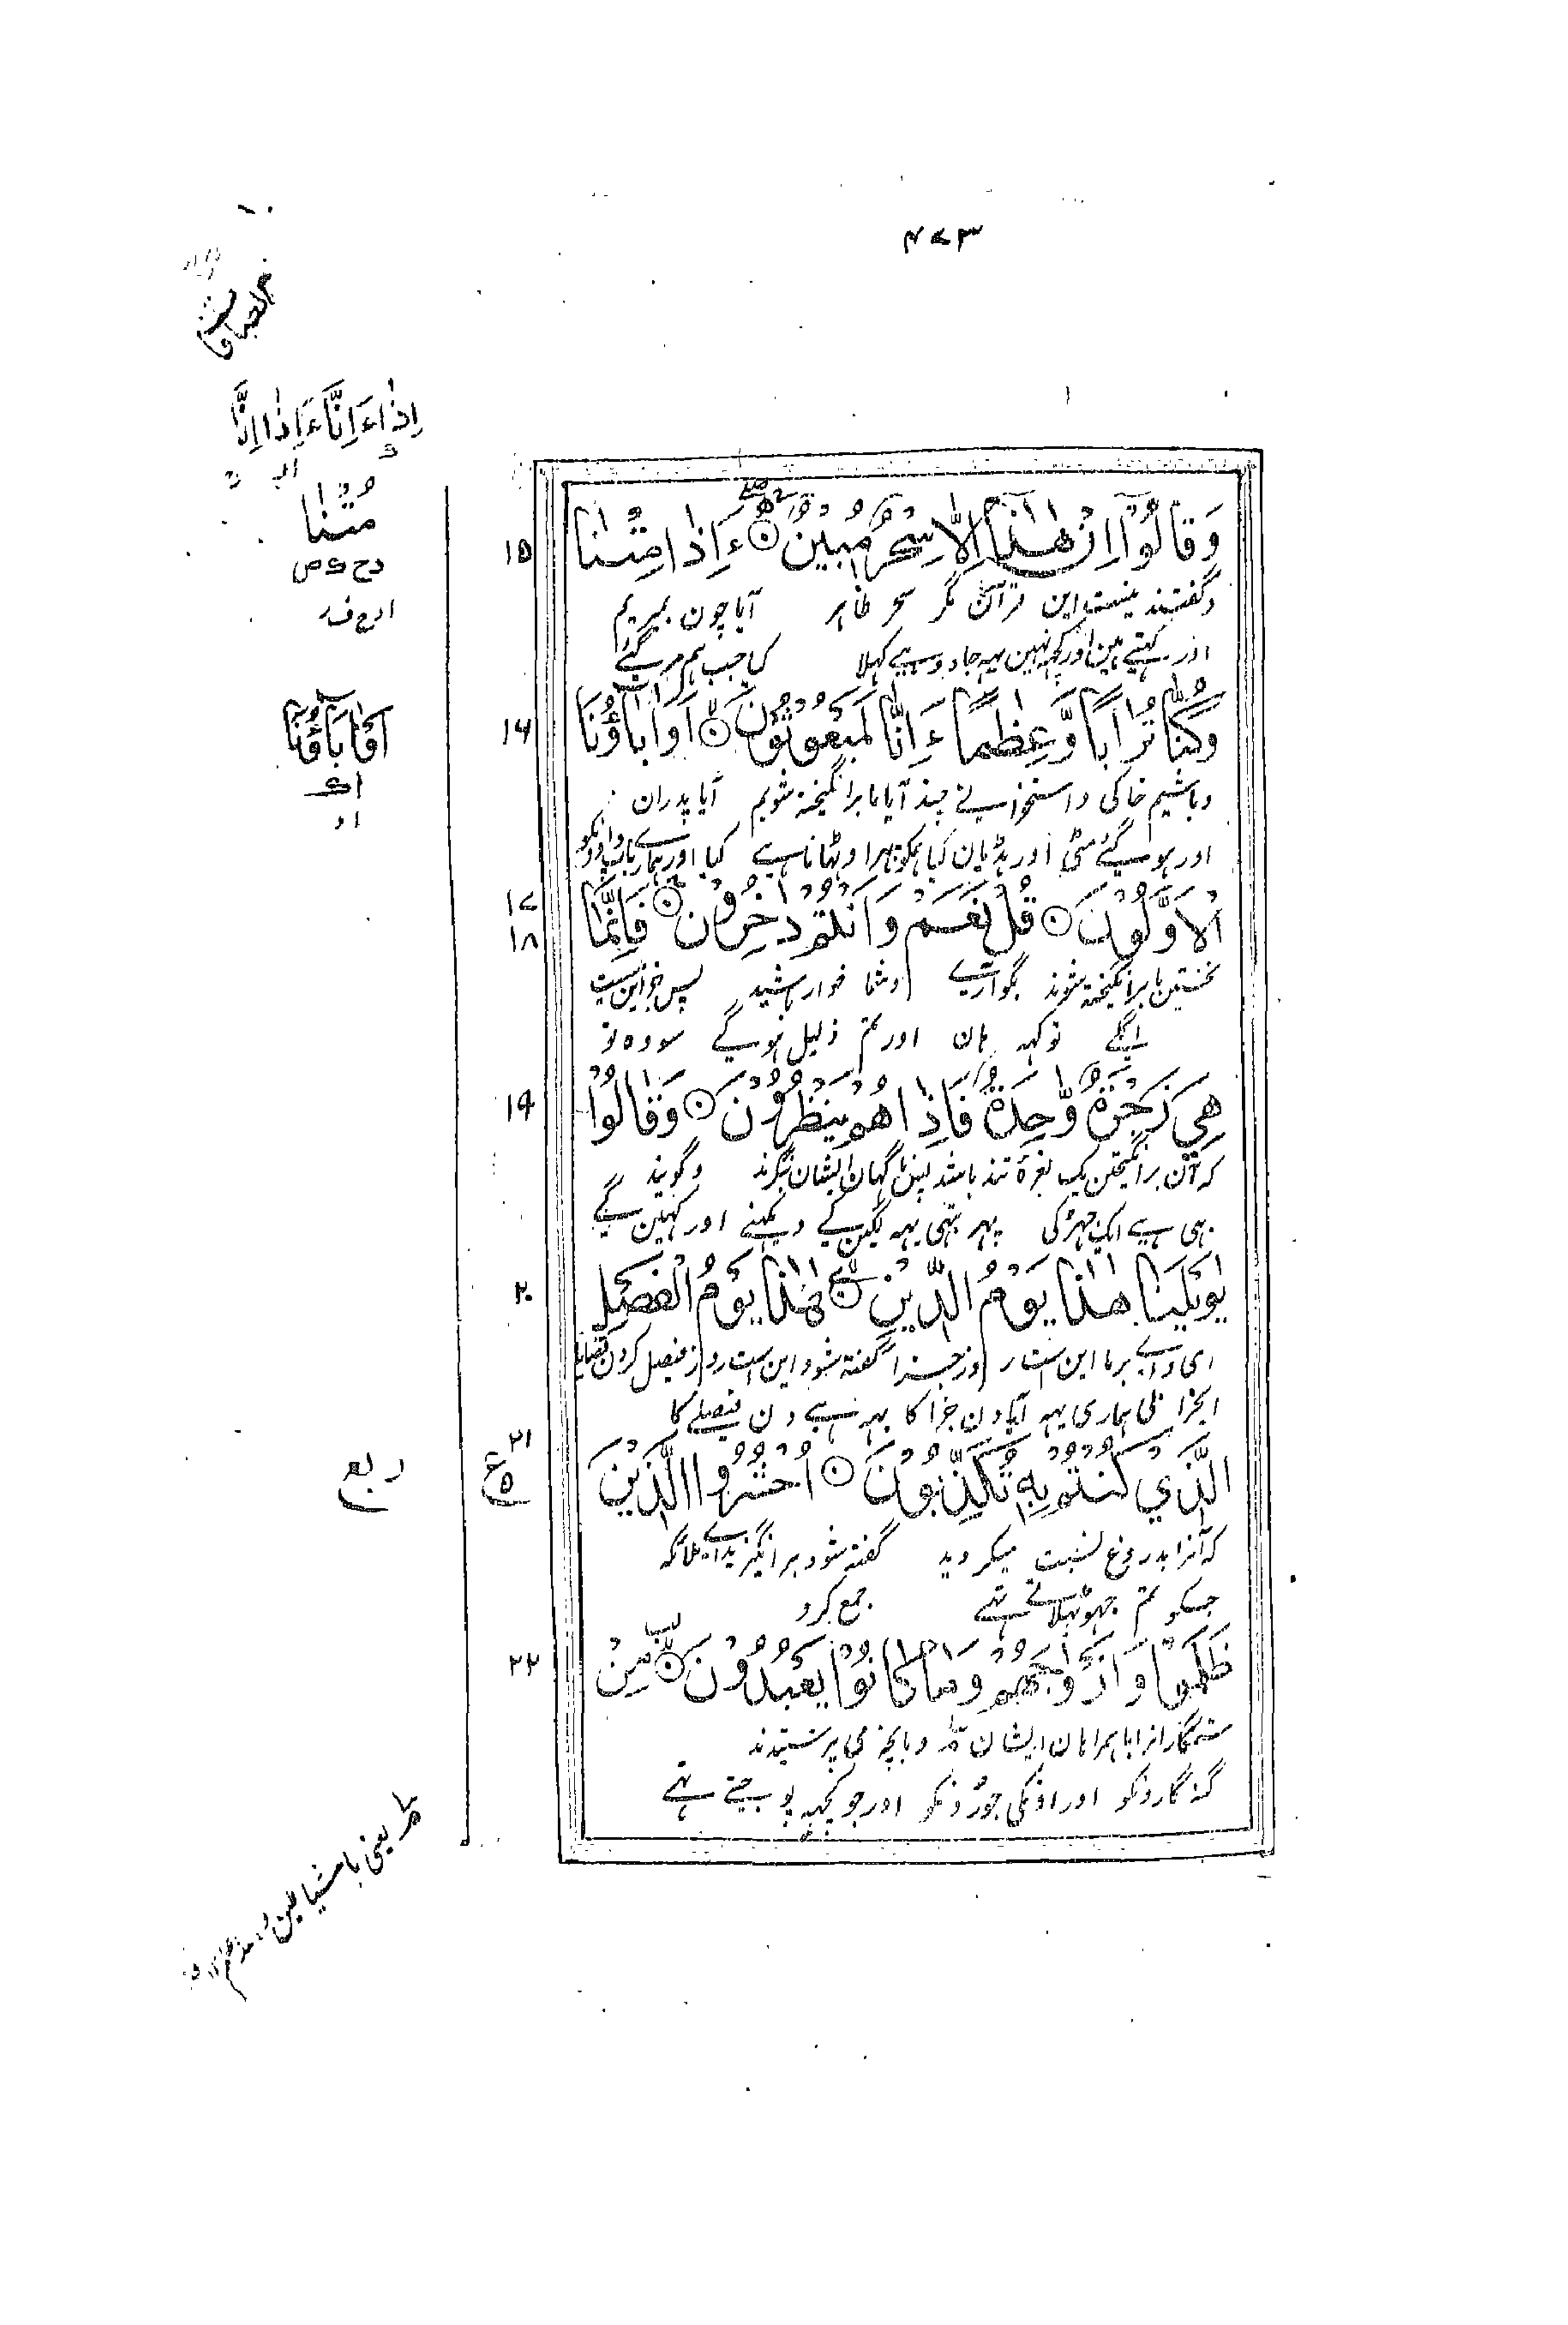 ۴۷۳
الصافات
وَقَالُوْٓا اِنْ هٰذَآ اِلَّا سِحْرٌ مُّبِيْنٌ ۝ ءَاِذَا مِتْنَا
۱۵
وگفتند نیست این قرآن مگر سحر ظاهر آیا چون بمیریم
اور کہتے ہین اور کچہہ نہین یہہ جادو ہے کہلا کیا جب ہم مر گئے
وَكُنَّا تُرَابًا وَّعِظٰمًا ءَاِنَّا لَمَبْعُوْثُوْنَ ۝ اَوَاٰبَآؤُنَا
۱۶
وباشیم خاکی و استخوانے چند آیا ما برانگیختہ شویم آیا پدران
اور ہو گئے مٹی اور ہڈیان کیا ہمکو پہر اوٹہانا ہے کیا اور ہمارے باپ دادونکو
الْاَوَّلُوْنَ ۝ قُلْ نَعَمْ وَاَنْتُمْ دَاخِرُوْنَ ۝ فَاِنَّمَا
۱۷
۱۸
نخستین ما برانگیختہ شوند بگو آرے وشما خوار باشید پس جز این نیست
اگلے تو کہہ ہان اور تم ذلیل ہوگے سو وہ تو
هِيَ زَجْرَةٌ وَّاحِدَةٌ فَاِذَا هُمْ يَنْظُرُوْنَ ۝ وَقَالُوْا
۱۹
کہ آن برانگیختن یک نعرۂ تند باشد پس ناگہان ایشان بنگرند وگویند
یہی ہے ایک جہڑکی پہر تبہی یہہ لگین گے دیکہنے اور کہین گے
يٰوَيْلَنَا هٰذَا يَوْمُ الدِّيْنِ ۝ هٰذَا يَوْمُ الْفَصْلِ
۲۰
ای وائے برما این است روز جزا گفتہ شود این است روز فیصل کردن قضایا
خرابی ہماری یہہ آیا دن جزا کا یہہ ہے دن فیصلے کا
الَّذِيْ كُنْتُمْ بِهٖ تُكَذِّبُوْنَ ۝ اُحْشُرُوا الَّذِيْنَ
۲۱
ع ۵
ربع
کہ آنرا بدروغ نسبت میکردید گفتہ شود برانگیزید اے ملائکہ
جسکو تم جہوٹہلاتے تہے جمع کرو
ظَلَمُوْا وَاَزْوَاجَهُمْ وَمَا كَانُوْا يَعْبُدُوْنَ ۝ مِنْ
۲۲
ستمگارانرا با ہمراہان ایشان و بانچہ می پرستیدند
گنہگارونکو اور اونکی جوڑونکو اور جو کچہہ پوجتے تہے
اِذَا ءَاِنَّا ءَاِذَا اِنَّا
مُتْنَا
اَوْاٰبَآؤُنَا
یعنی با شیاطین